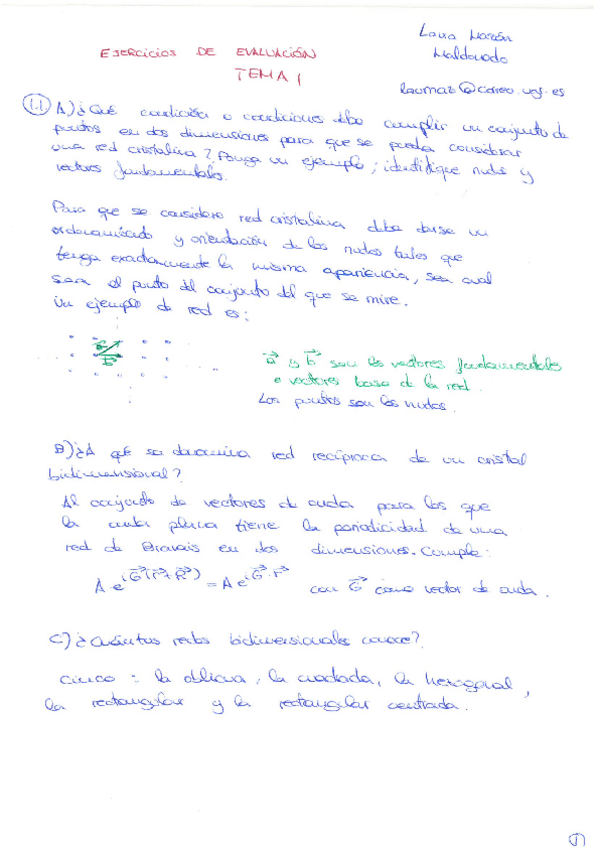 Laura
Maldonado
EJERCICIOS DE EVALUACIÓN
TEMA 1
laumaz@correo.ugr.es
1.1 A) ¿Qué condición o condiciones debe cumplir un conjunto de
puntos en dos dimensiones para que se pueda considerar
una red cristalina? Ponga un ejemplo; identifique nudos y
vectores fundamentales.
Para que se considere red cristalina debe darse un
ordenamiento y orientación de los nudos tales que
tenga exactamente la misma apariencia, sea cual
sea el punto del conjunto del que se mire.
Un ejemplo de red es:
a⃗
b⃗
a⃗ y b⃗ son los vectores fundamentales
o vectores base de la red.
Los puntos son los nudos.
B) ¿A qué se denomina red recíproca de un cristal
bidimensional?
Al conjunto de vectores de onda para los que
la onda plana tiene la periodicidad de una
red de Bravais en dos dimensiones. Cumple:
A e^{iG⃗(r⃗+R⃗)} = A e^{iG⃗·r⃗} con G⃗ como vector de onda.
C) ¿Cuántas redes bidimensionales conoce?
Cinco: la oblicua, la cuadrada, la hexagonal,
la rectangular y la rectangular centrada.
1